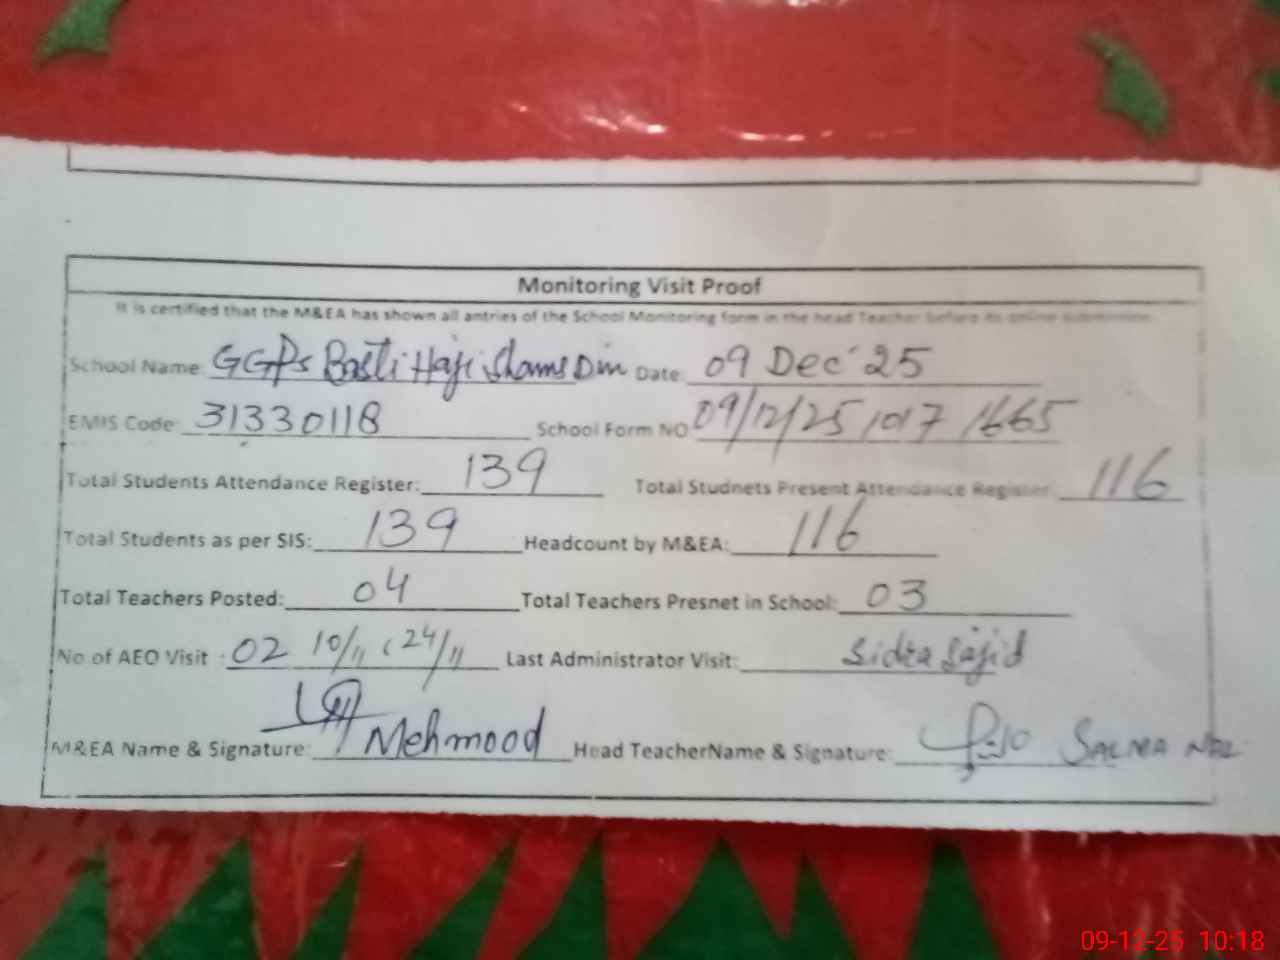 Monitoring Visit Proof
It is certified that the M&EA has shown all antries of the School Monitoring form in the head Teacher before its online submission.
School Name: GGPS Basti Haji Shams Din Date: 09 Dec' 25
EMIS Code: 31330118 School Form NO 09/12/25 1017 1665
Total Students Attendance Register: 139 Total Studnets Present Attendance Register: 116
Total Students as per SIS: 139 Headcount by M&EA: 116
Total Teachers Posted: 04 Total Teachers Presnet in School: 03
No of AEO Visit : 02 10/11, 24/11 Last Administrator Visit: Sidra Sajid
M&EA Name & Signature: Mehmood Head TeacherName & Signature: SALMA
09-12-25 10:18